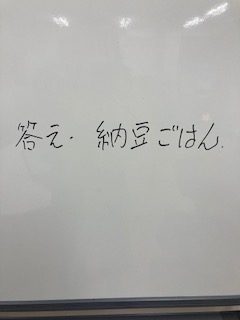 答え. 納豆ごはん.